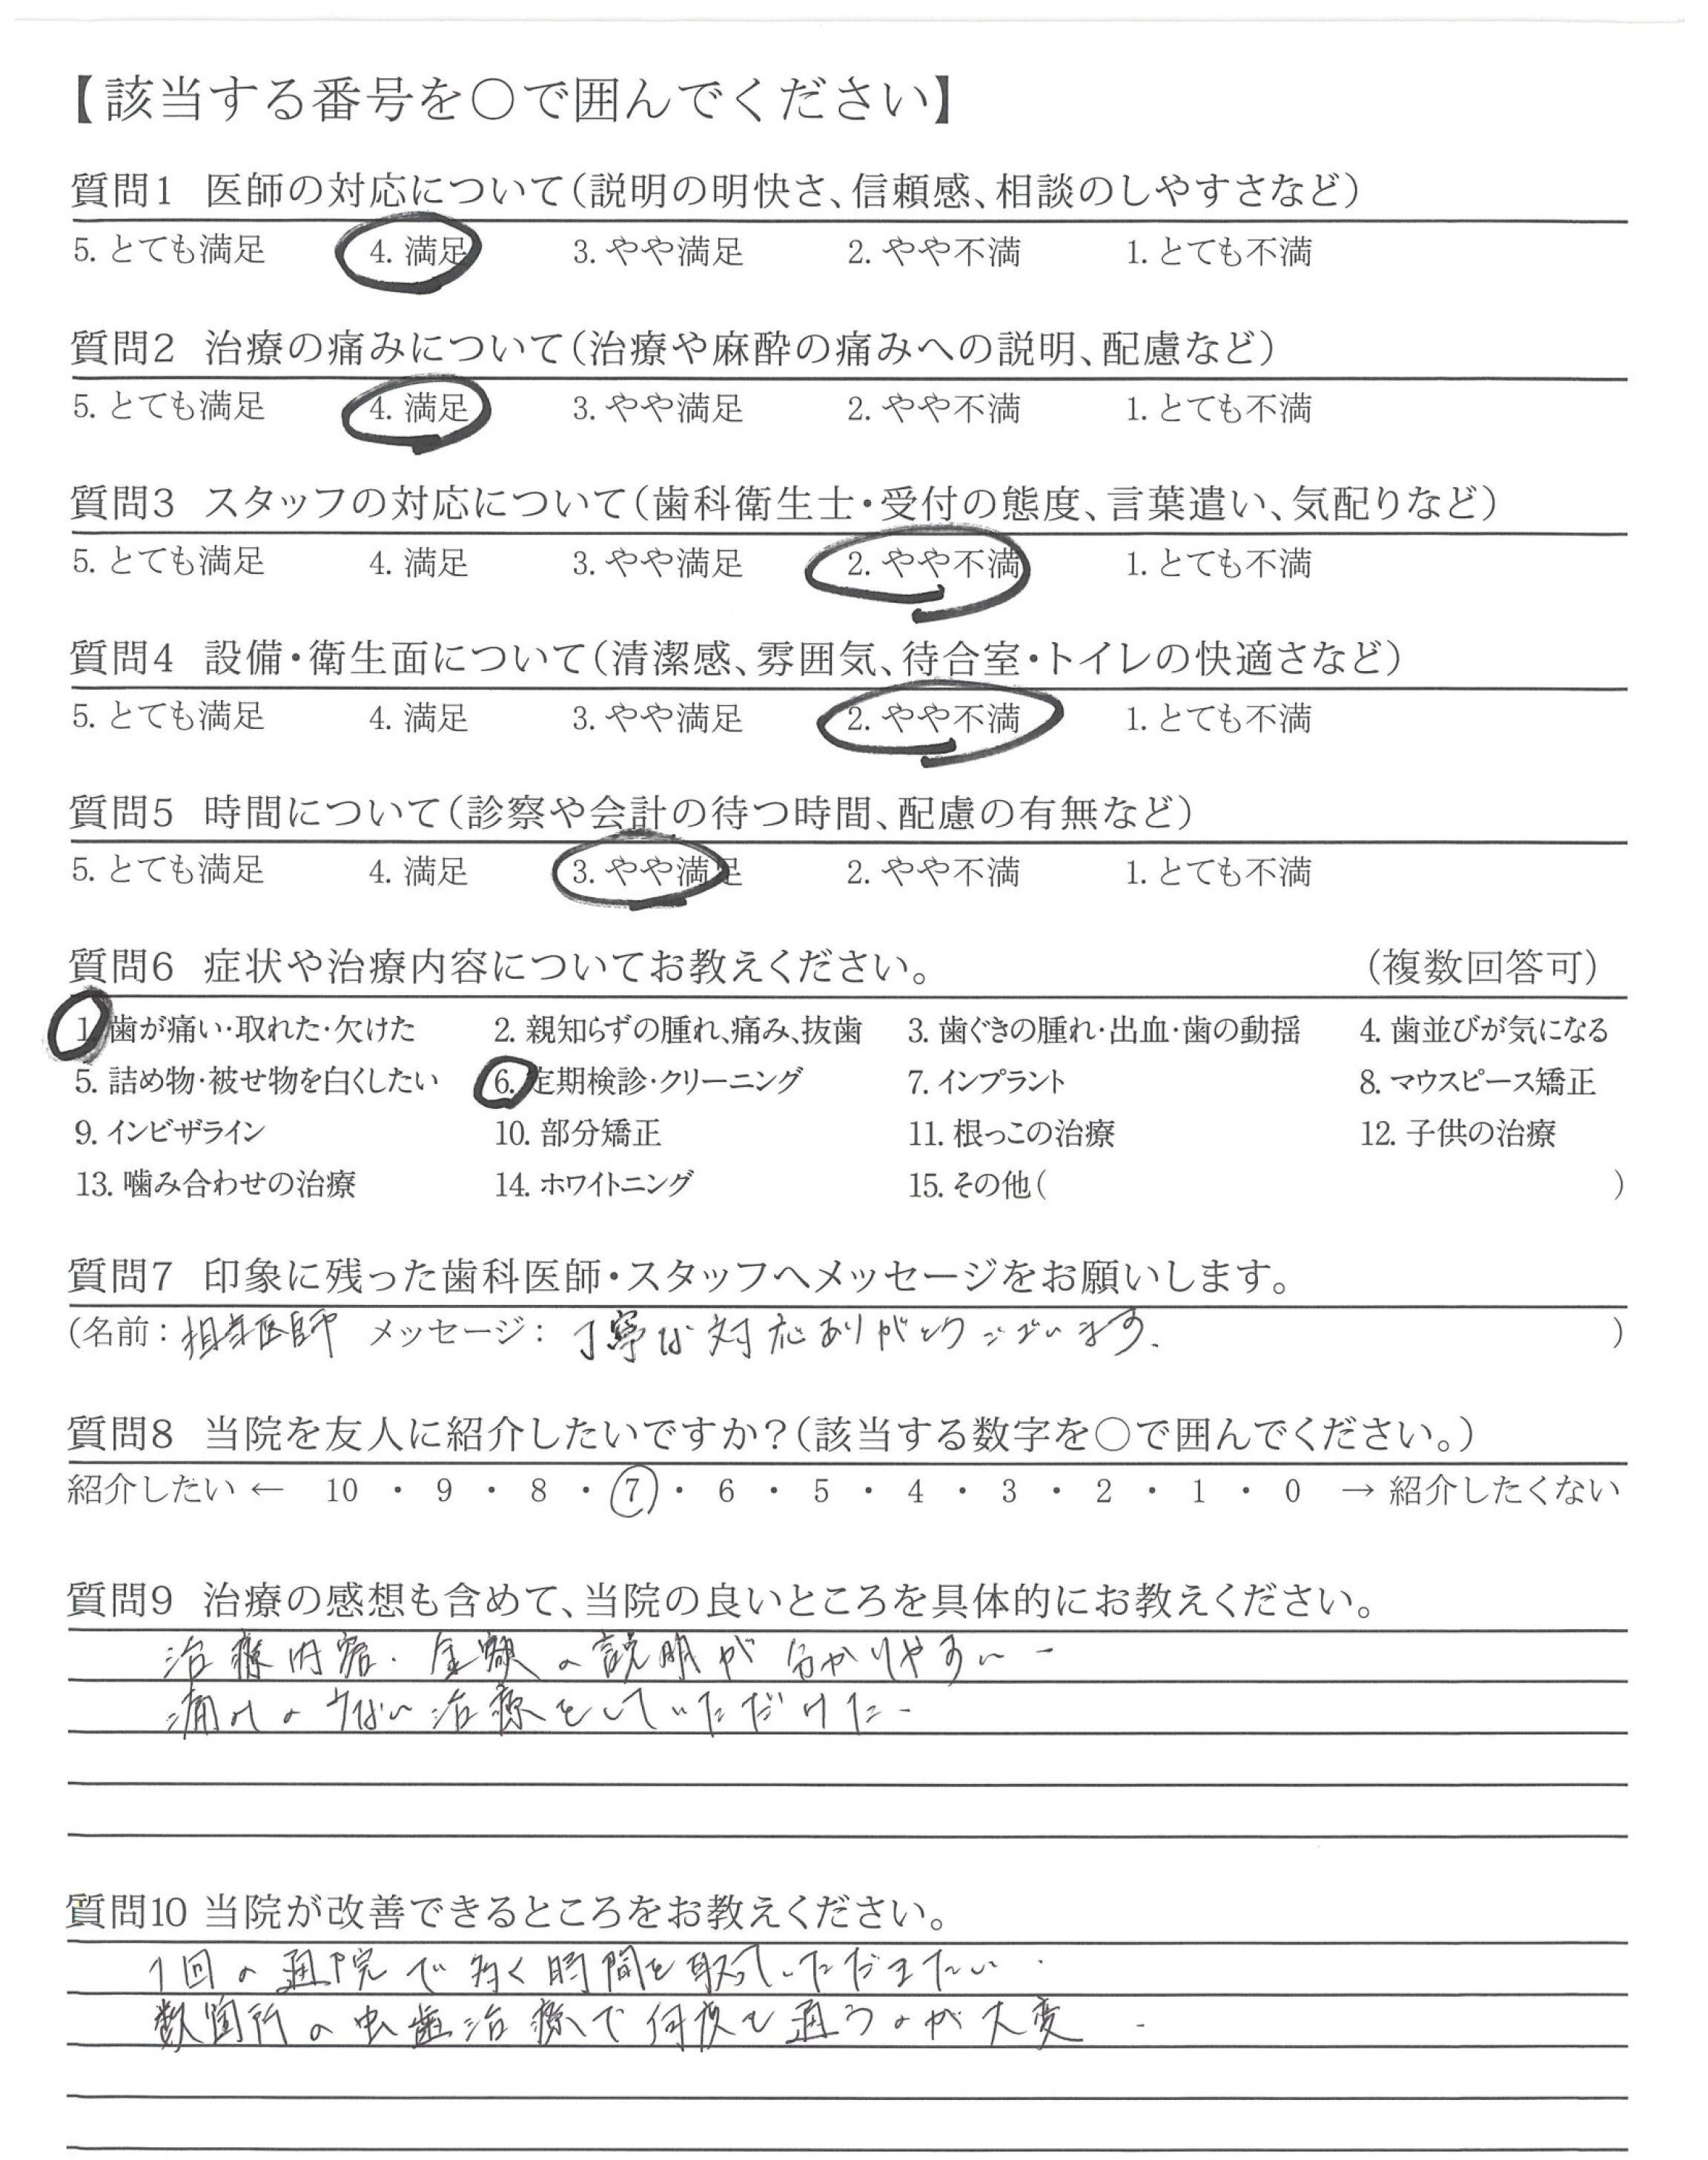 【該当する番号を○で囲んでください】
質問1 医師の対応について(説明の明快さ、信頼感、相談のしやすさなど)
5. とても満足 4. 満足 3. やや満足 2. やや不満 1. とても不満
質問2 治療の痛みについて(治療や麻酔の痛みへの説明、配慮など)
5. とても満足 4. 満足 3. やや満足 2. やや不満 1. とても不満
質問3 スタッフの対応について(歯科衛生士・受付の態度、言葉遣い、気配りなど)
5. とても満足 4. 満足 3. やや満足 2. やや不満 1. とても不満
質問4 設備・衛生面について(清潔感、雰囲気、待合室・トイレの快適さなど)
5. とても満足 4. 満足 3. やや満足 2. やや不満 1. とても不満
質問5 時間について(診察や会計の待つ時間、配慮の有無など)
5. とても満足 4. 満足 3. やや満足 2. やや不満 1. とても不満
質問6 症状や治療内容についてお教えください。 (複数回答可)
1. 歯が痛い・取れた・欠けた 2. 親知らずの腫れ、痛み、抜歯 3. 歯ぐきの腫れ・出血・歯の動揺 4. 歯並びが気になる
5. 詰め物・被せ物を白くしたい 6. 定期検診・クリーニング 7. インプラント 8. マウスピース矯正
9. インビザライン 10. 部分矯正 11. 根っこの治療 12. 子供の治療
13. 噛み合わせの治療 14. ホワイトニング 15. その他( )
質問7 印象に残った歯科医師・スタッフへメッセージをお願いします。
(名前：担当医師 メッセージ：丁寧な対応ありがとうございます. )
質問8 当院を友人に紹介したいですか？(該当する数字を○で囲んでください。)
紹介したい ← 10 ・ 9 ・ 8 ・ 7 ・ 6 ・ 5 ・ 4 ・ 3 ・ 2 ・ 1 ・ 0 → 紹介したくない
質問9 治療の感想も含めて、当院の良いところを具体的にお教えください。
治療内容・金額の説明が分かりやすい.
痛みの少ない治療をしていただけた.
質問10 当院が改善できるところをお教えください。
1回の通院で多く時間を取っていただきたい.
数箇所の虫歯治療で何度も通うのが大変.